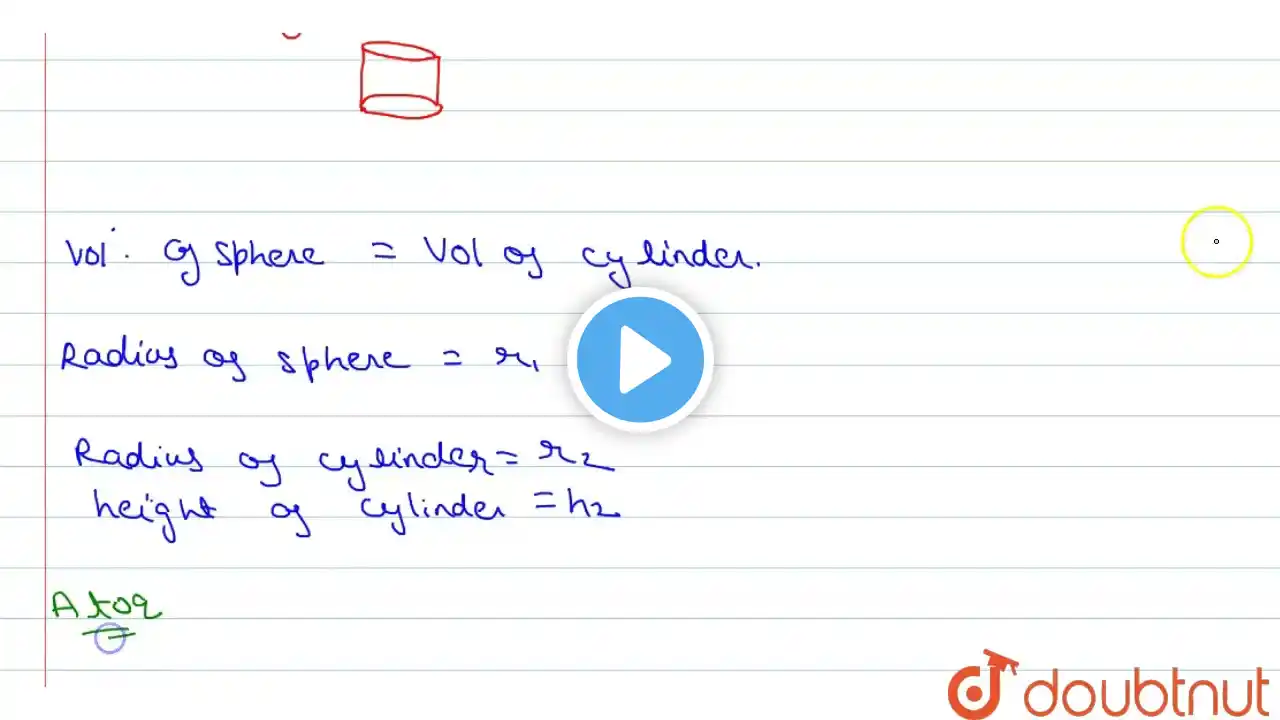 Vol. of sphere = Vol of cylinder.
Radius of sphere = r₁
Radius of cylinder = r₂
height of cylinder = h₂
A toq
doubtnut